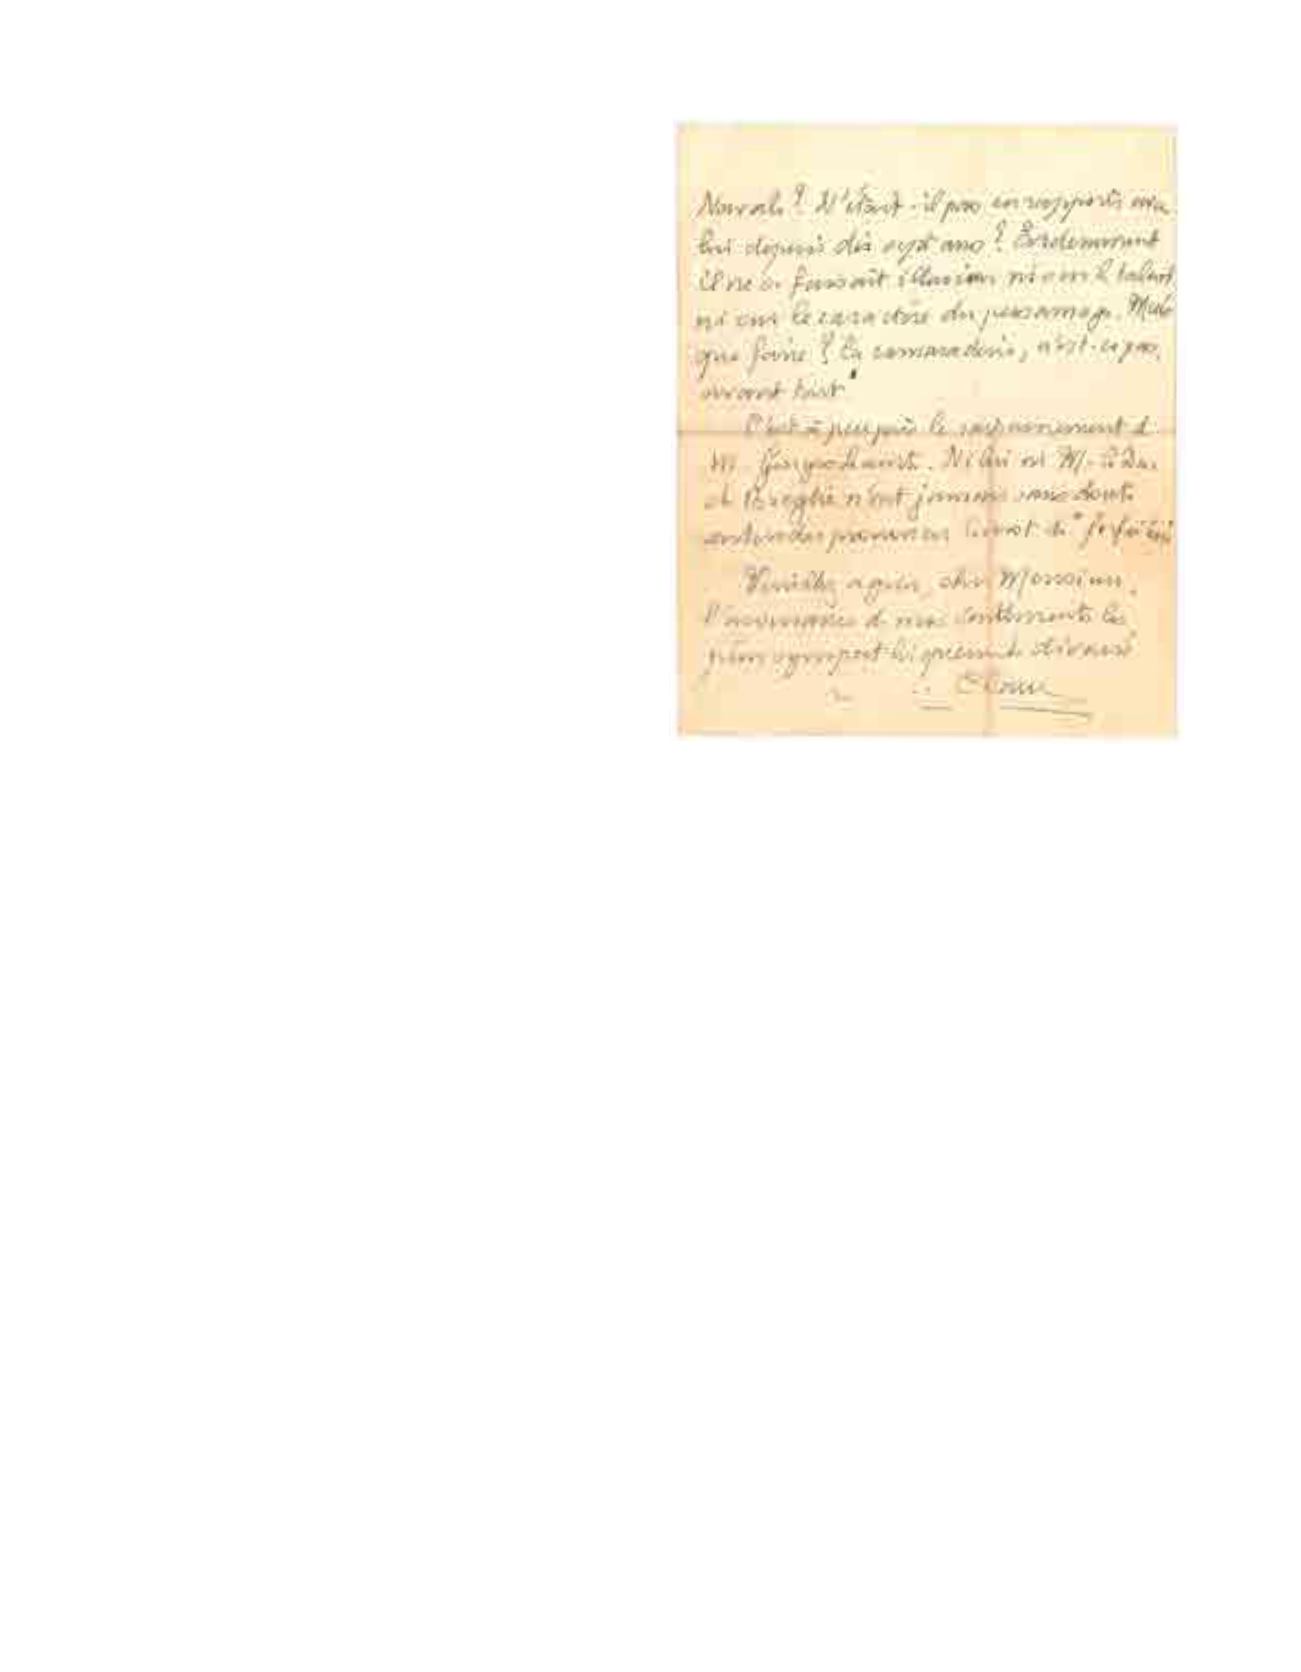 ? N'était-il pas en rapports avec
lui depuis dix sept ans ? Evidemment
il ne se faisait illusion ni sur le talent
ni sur le caractère du personnage. Mais
que faire ? La camaraderie, n'est-ce pas,
avant tout"
C'est à peu près le raisonnement de
M. . Ni lui ni M. le Duc
de Broglie n'ont jamais sans doute
entendu prononcer le mot de "
Veuillez agréer, cher Monsieur,
l'assurance de mes sentiments les
plus sympathiquement dévoués